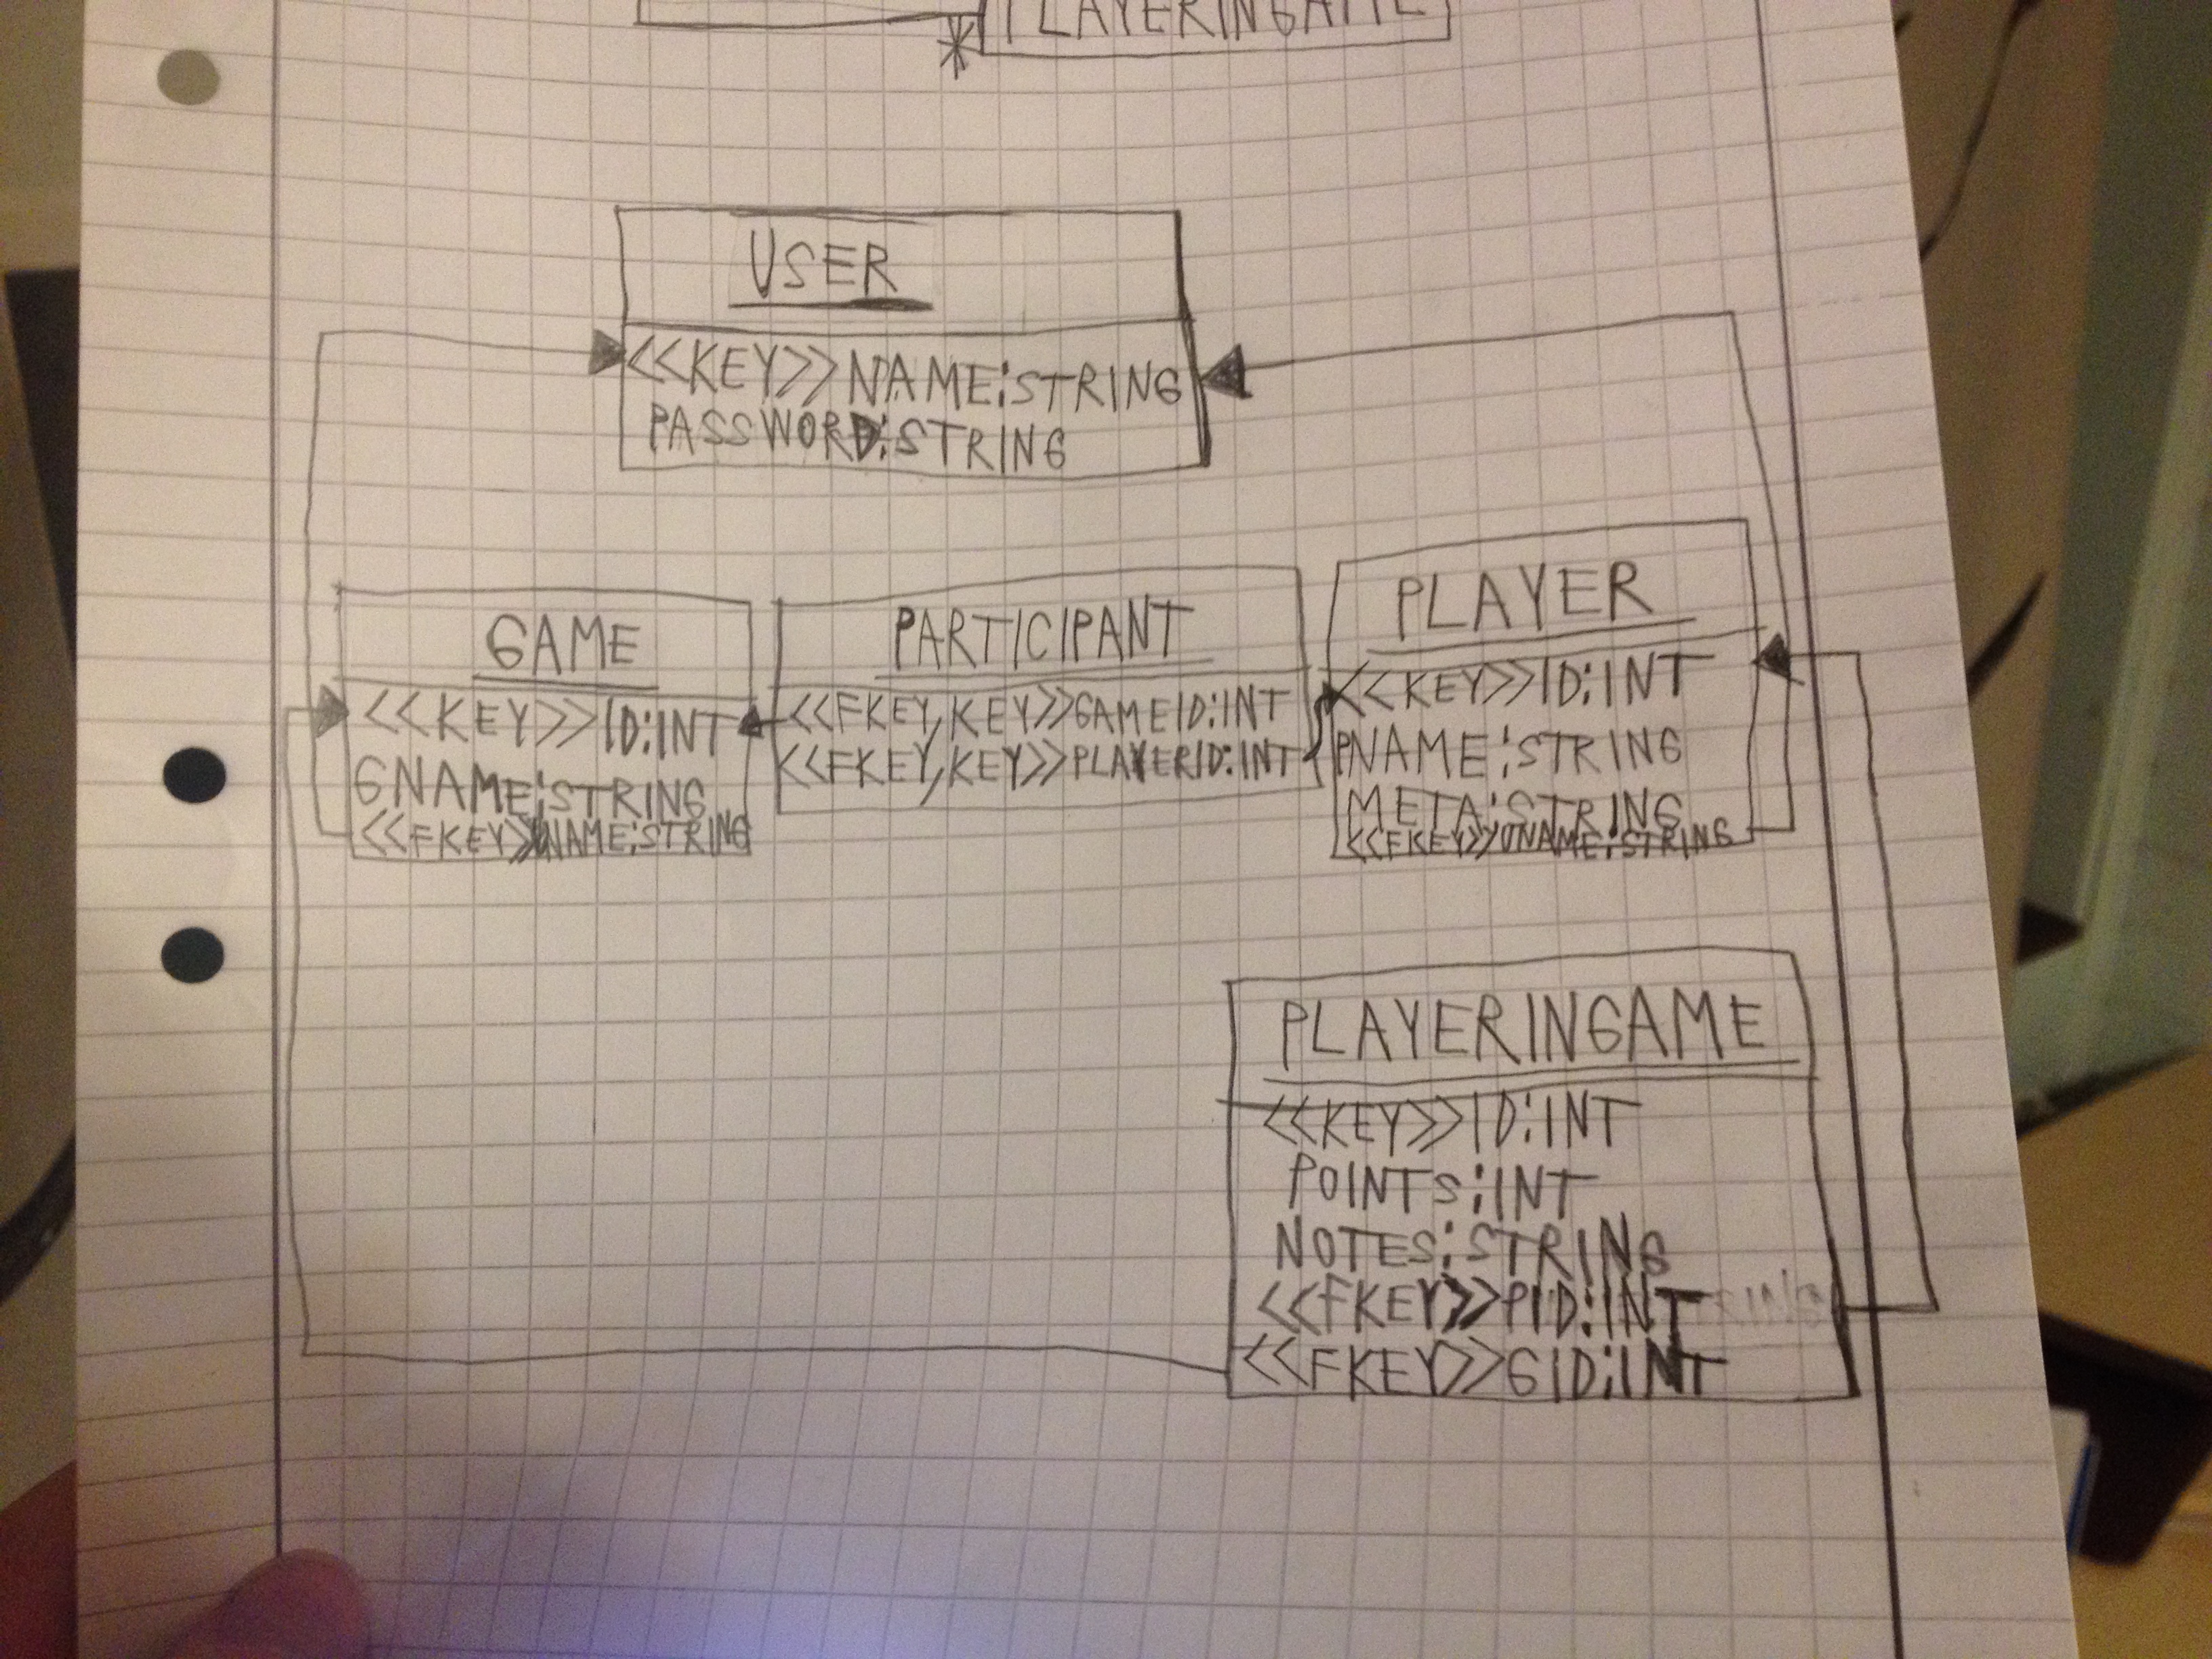 PLAYERINGAME
*
USER
<<KEY>>NAME:STRING
PASSWORD:STRING
GAME
<<KEY>>ID:INT
GNAME:STRING
<<FKEY>>UNAME:STRING
PARTICIPANT
<<FKEY,KEY>>GAMEID:INT
<<FKEY,KEY>>PLAYERID:INT
PLAYER
<<KEY>>ID:INT
PNAME:STRING
META:STRING
<<FKEY>>UNAME:STRING
PLAYERINGAME
<<KEY>>ID:INT
POINTS:INT
NOTES:STRING
<<FKEY>>PID:INT
<<FKEY>>GID:INT